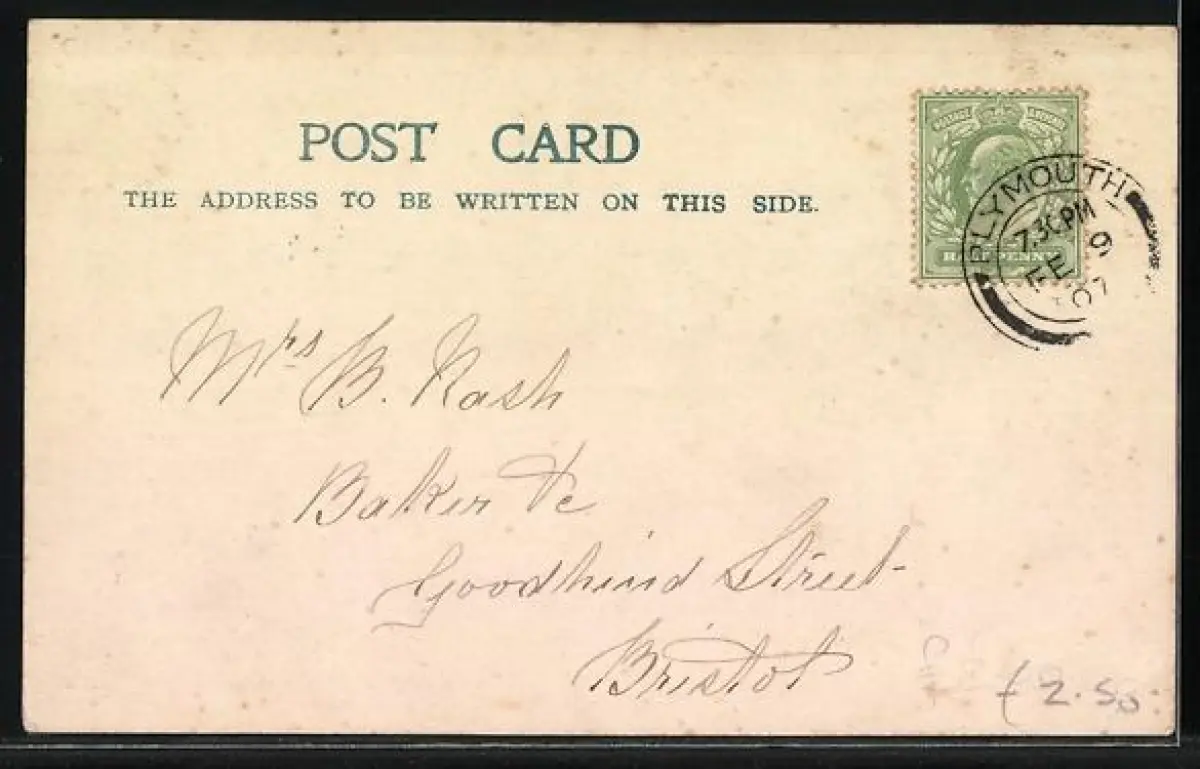 POST CARD
THE ADDRESS TO BE WRITTEN ON THIS SIDE.
HALFPENNY
PLYMOUTH
7.30PM
FE 9
07
Mrs B. Nash
Baker &c
Goodhind Street
Bristol
£2.50